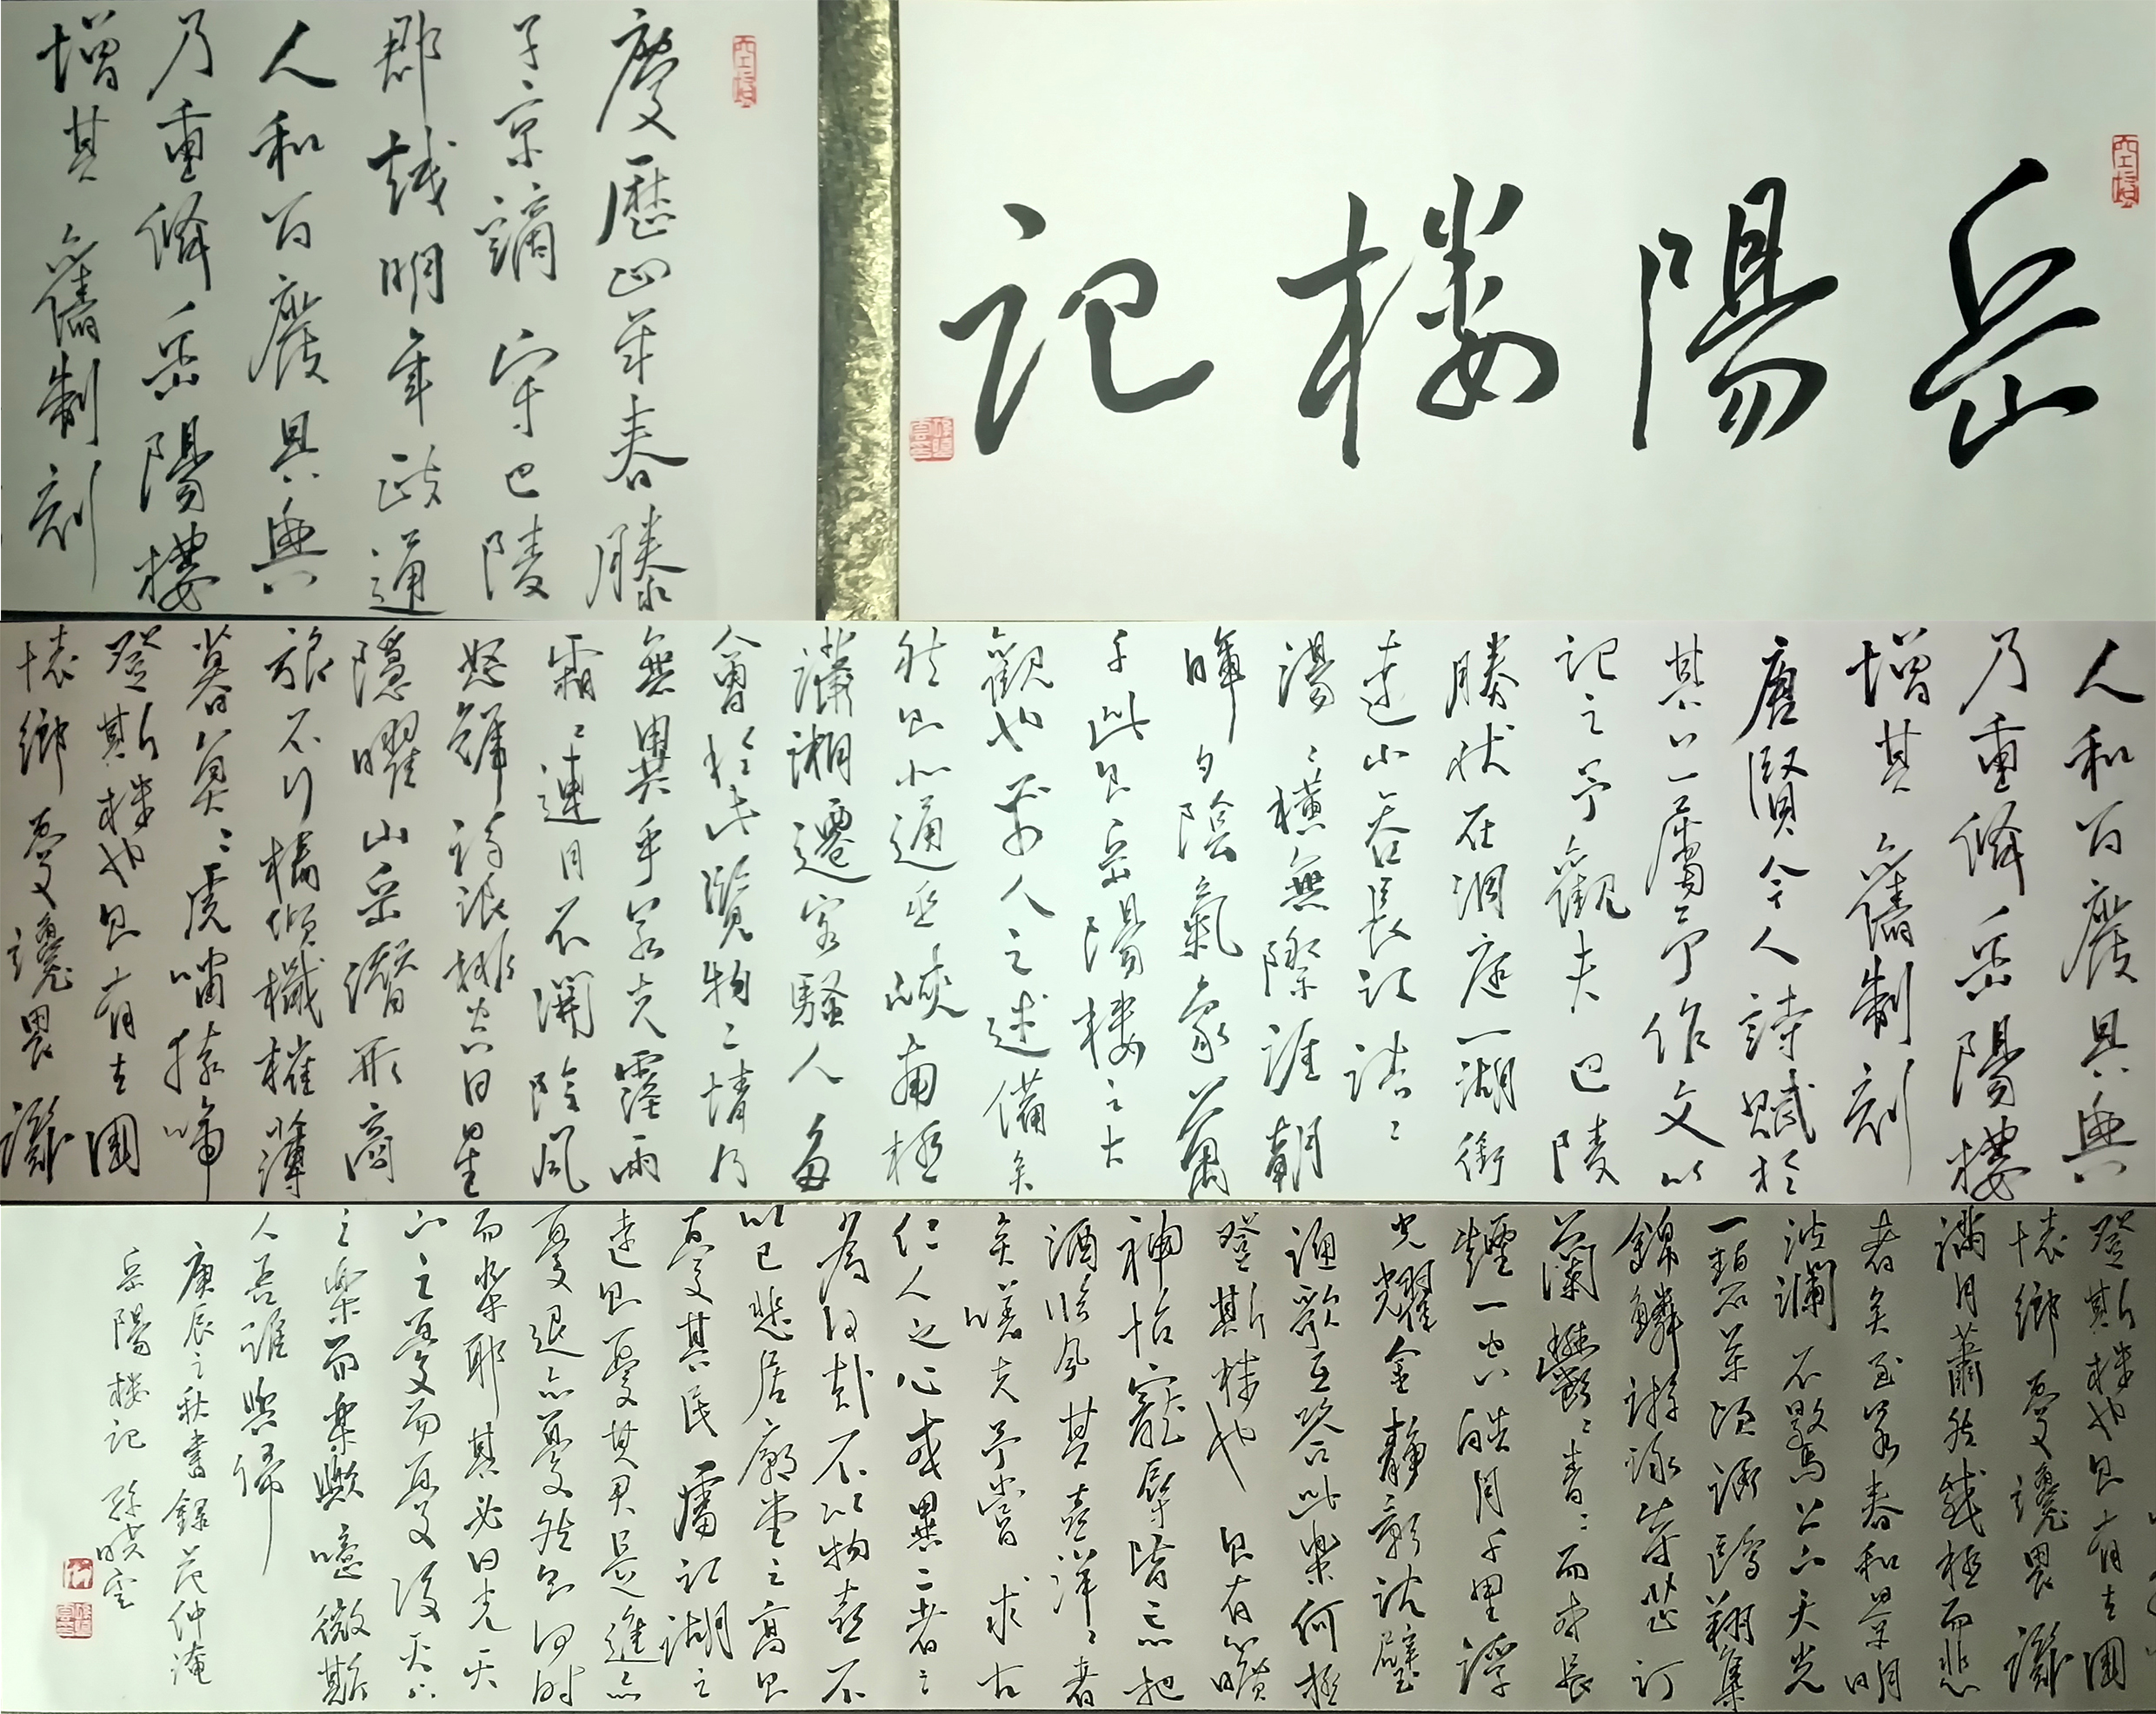 岳陽楼記
慶歷四年春滕
子京謫守巴陵
郡越明年政通
人和百廢具興
乃重脩岳陽樓
增其舊制刻
人和百廢具興
乃重脩岳陽樓
增其舊制刻
唐賢今人詩賦於
其上屬予作文以
記之予觀夫巴陵
勝狀在洞庭一湖銜
遠山吞長江浩〻
湯〻橫無際涯朝
暉夕陰氣象萬
千此則岳陽楼之大
觀也前人之述備矣
然則北通巫峽南極
瀟湘遷客騷人多
會於此覽物之情乃
無異乎若夫霪雨
霏〻連月不開陰風
怒號濁浪排空日星
隱曜山岳潛形商
旅不行檣傾檝摧薄
暮冥〻虎嘯猿啼
登斯楼也則有去國
懷鄉憂讒畏譏
登斯楼也則有去國
懷鄉憂讒畏譏
滿目蕭然感極而悲
者矣至若春和景明
波瀾不驚上下天光
一碧萬頃沙鷗翔集
錦鱗游泳岸芷汀
蘭鬱〻青〻而或長
煙一空皓月千里浮
光耀金靜影沈璧
漁歌互答此樂何極
登斯楼也則有心曠
神怡寵辱皆忘把
酒臨風其喜洋〻者
矣嗟夫予嘗求古
仁人之心或異二者之
為何哉不以物喜不
以己悲居廟堂之高則
憂其民處江湖之
遠則憂其君是進亦
憂退亦憂然則何時
而樂耶其必曰先天
下之憂而憂後天下
之樂而樂歟噫微斯
人吾誰與歸
庚辰之秋書錄范仲淹
岳陽楼記 孫曉空